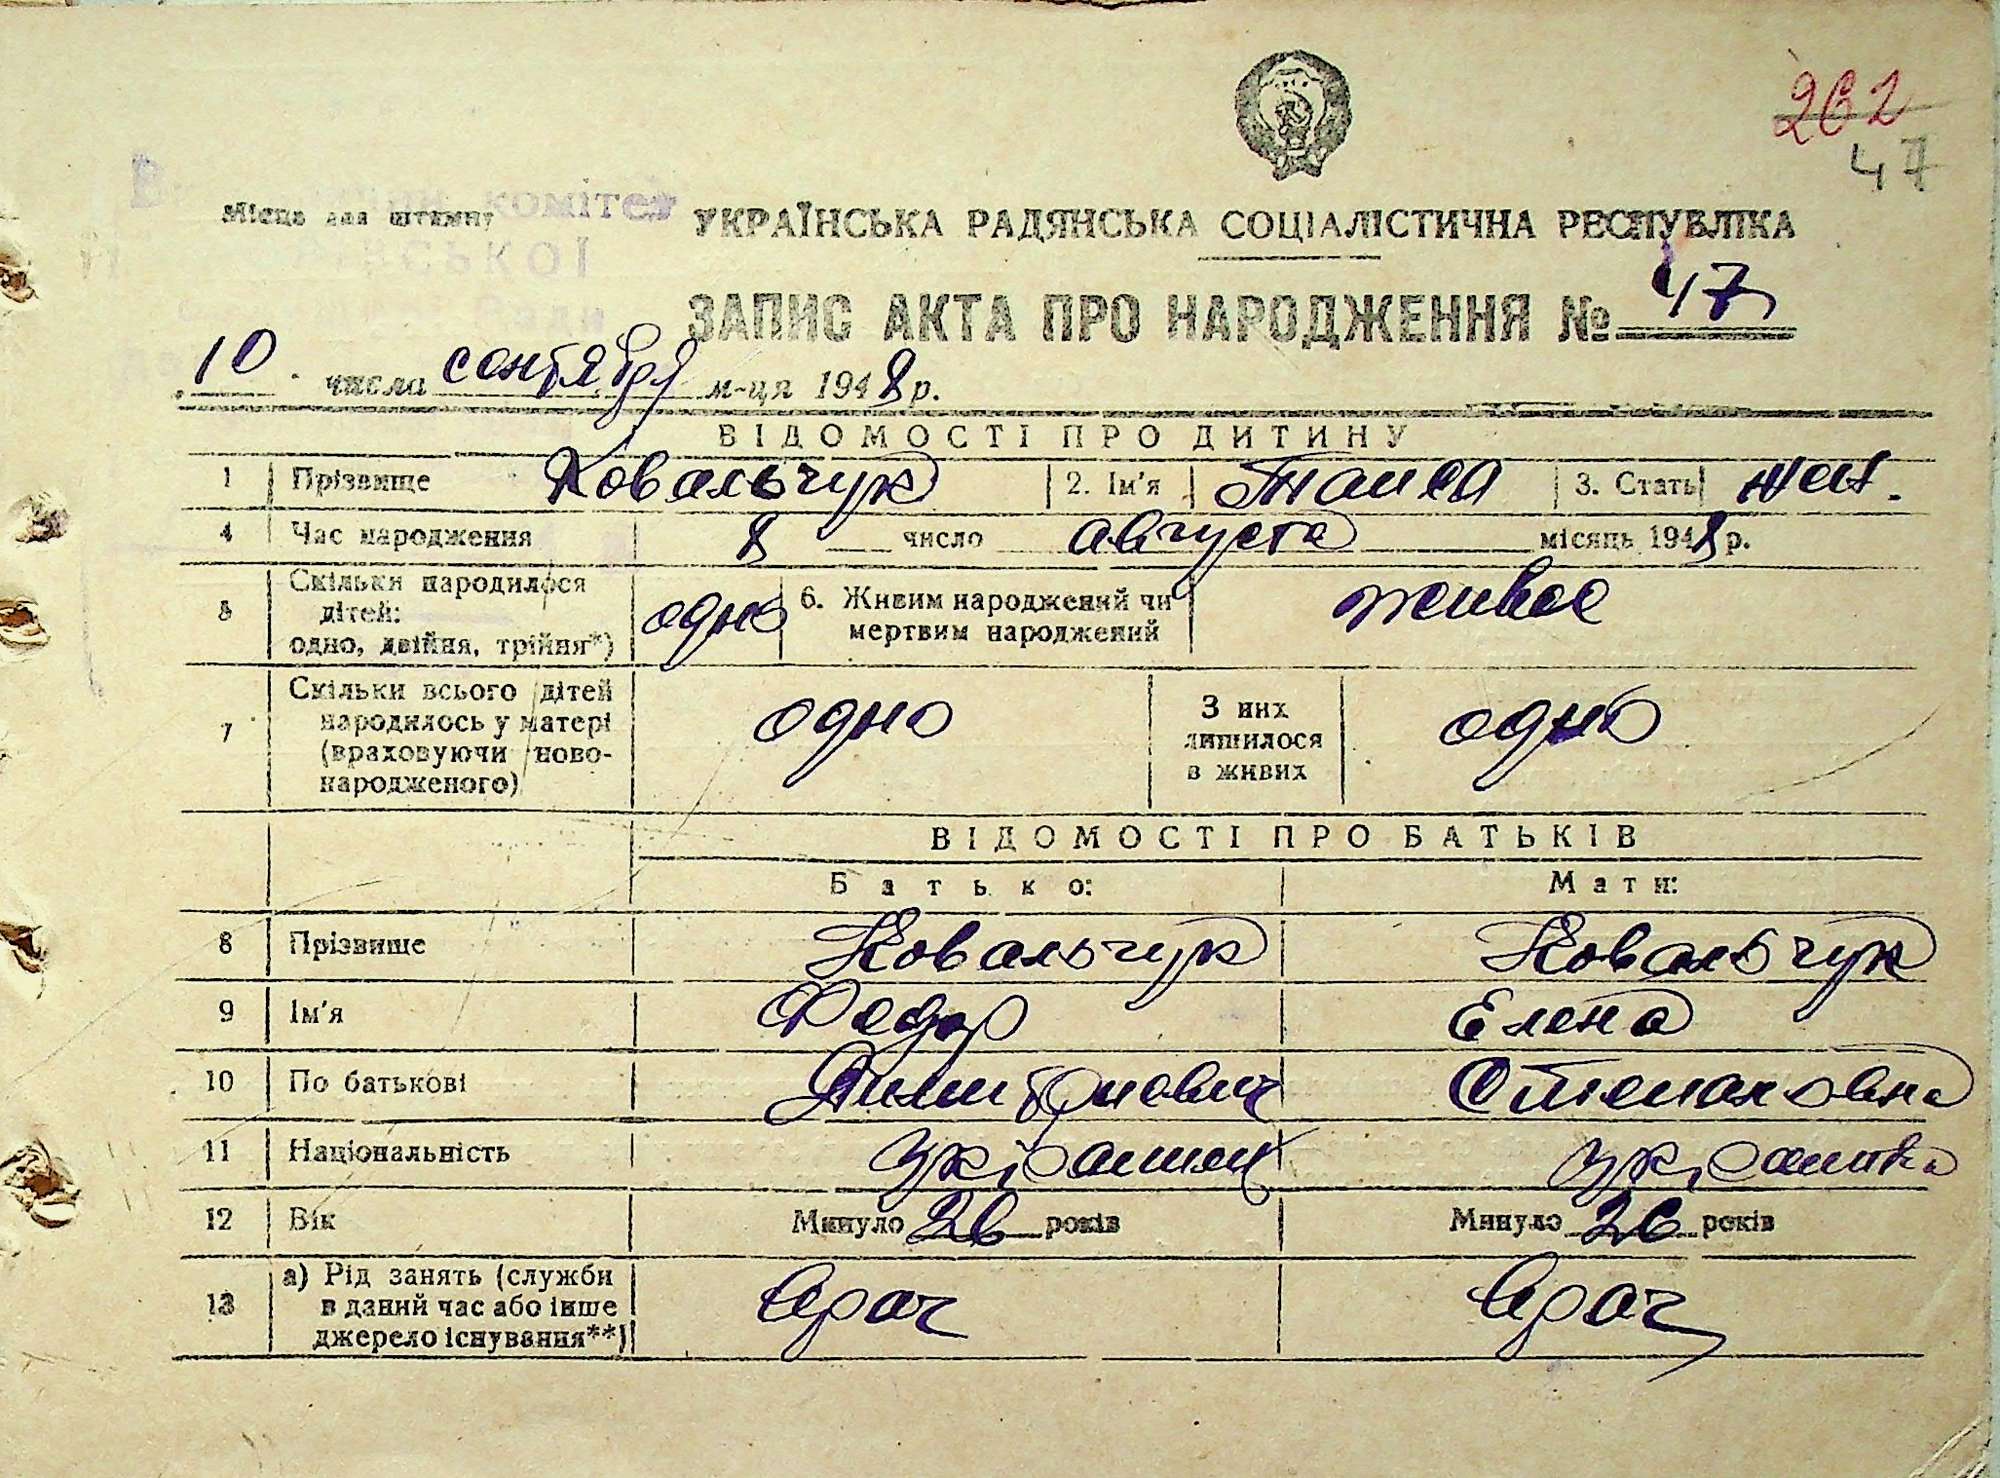 262
47
Місце для штампу
комітет
УКРАЇНСЬКА РАДЯНСЬКА СОЦІАЛІСТИЧНА РЕСПУБЛІКА
ЗАПИС АКТА ПРО НАРОДЖЕННЯ № 47
10 числа сентября м-ця 1948 р.
ВІДОМОСТІ ПРО ДИТИНУ
1 Прізвище Ковальчук 2. Ім'я Таиса 3. Стать жен.
4 Час народження 8 число августа місяць 1948 р.
5 Скільки народилося дітей: одно, двійня, трійня*) одно 6. Живим народжений чи мертвим народжений живое
7 Скільки всього дітей народилось у матері (враховуючи ново-народженого) одно З них лишилося в живих одно
ВІДОМОСТІ ПРО БАТЬКІВ
Батько: Мати:
8 Прізвище Ковальчук Ковальчук
9 Ім'я Федор Елена
10 По батькові Дмитриевич Степановна
11 Національність українец українка
12 Вік Минуло 26 років Минуло 26 років
13 а) Рід занять (служби в даний час або інше джерело існування**) врач врач